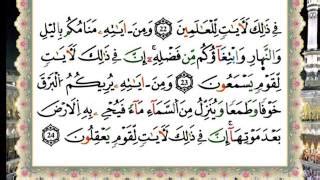 فِى ذٰلِكَ لَاٰيٰتٍ لِّلْعٰلِمِيْنَ 22 وَمِنْ اٰيٰتِهٖ مَنَامُكُمْ بِالَّيْلِ
وَالنَّهَارِ وَابْتِغَآؤُكُمْ مِّنْ فَضْلِهٖ ۚ اِنَّ فِىْ ذٰلِكَ لَاٰيٰتٍ
لِّقَوْمٍ يَّسْمَعُوْنَ 23 وَمِنْ اٰيٰتِهٖ يُرِيْكُمُ الْبَرْقَ
خَوْفًا وَّطَمَعًا وَّيُنَزِّلُ مِنَ السَّمَآءِ مَآءً فَيُحْىٖ بِهِ الْاَرْضَ
بَعْدَ مَوْتِهَا ۚ اِنَّ فِىْ ذٰلِكَ لَاٰيٰتٍ لِّقَوْمٍ يَّعْقِلُوْنَ 24